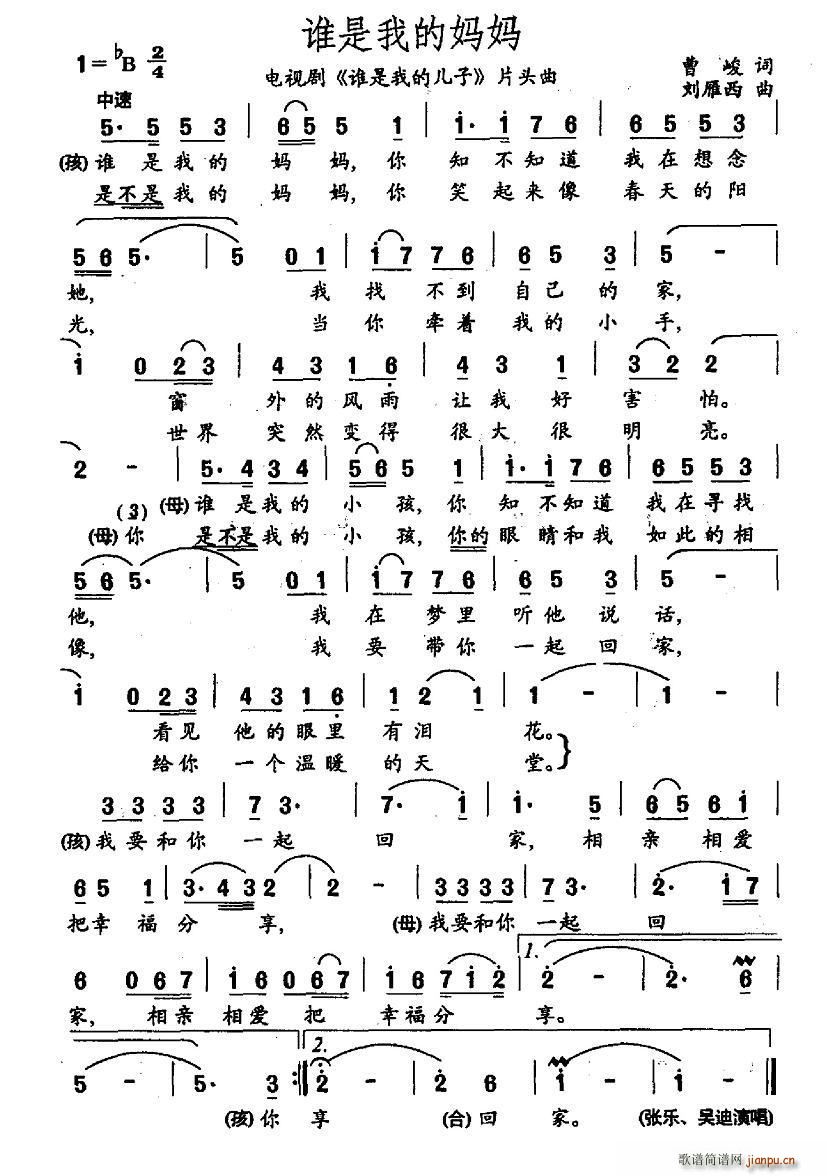 谁是我的妈妈
1=♭B 2/4
电视剧《谁是我的儿子》片头曲
曹 峻 词
刘雁西 曲
中速
5· 5 5 3 | 6 5 5 1 | i· i 7 6 | 6 5 5 3 |
(孩)谁 是 我 的 妈 妈, 你 知 不 知 道 我 在 想 念
是不是 我 的 妈 妈, 你 笑 起 来 像 春 天 的 阳
5 6 5· | 5 0 1 | i 7 7 6 | 6 5 3 | 5 - |
她, 我 找 不 到 自 己 的 家,
光, 当 你 牵 着 我 的 小 手,
i 0 2 3 | 4 3 1 6 | 4 3 1 | 3 2 2 |
窗 外 的 风 雨 让 我 好 害 怕。
世 界 突 然 变 得 很 大 很 明 亮。
2 - | 5· 4 3 4 | 5 6 5 1 | i· i 7 6 | 6 5 5 3 |
(3) (母)谁 是 我 的 小 孩, 你 知 不 知 道 我 在 寻 找
(母)你 是不是 我 的 小 孩, 你的 眼 睛 和 我 如 此 的 相
5 6 5· | 5 0 1 | i 7 7 6 | 6 5 3 | 5 - |
他, 我 在 梦 里 听 他 说 话,
像, 我 要 带 你 一 起 回 家,
i 0 2 3 | 4 3 1 6 | 1 2 1 | 1 - | 1 - |
看 见 他 的 眼 里 有 泪 花。
给 你 一 个 温 暖 的 天 堂。
3 3 3 3 | 7 3· | 7· i | i· 5 | 6 5 6 i |
(孩)我 要 和 你 一 起 回 家, 相 亲 相 爱
6 5 1 | 3· 4 3 2 | 2 - | 3 3 3 3 | 7 3· | 2· i 7 |
把 幸 福 分 享, (母)我 要 和 你 一 起 回
6 0 6 7 | i 6 0 6 7 | i 6 7 i 2 | 1. 2 - | 2· 6 |
家, 相 亲 相 爱 把 幸 福 分 享。
5 - | 5· 3 :| 2. 2 - | 2 6 | i - | i - |
(孩)你 享 (合)回 家。 (张乐、吴迪演唱)
歌谱简谱网
jianpu.cn